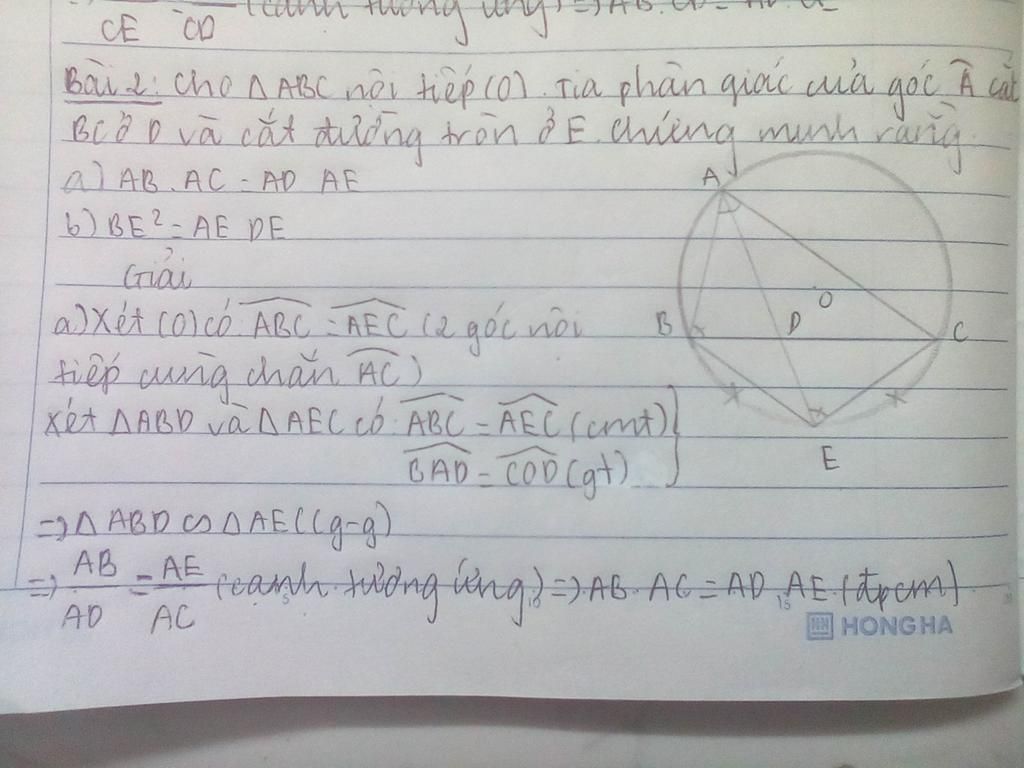 CE CD (cạnh tương ứng) => AB.CD = AD.CE
Bài 2: Cho △ABC nội tiếp (O). Tia phân giác của góc Â cắt
BC ở D và cắt đường tròn ở E. Chứng minh rằng.
a) AB.AC = AD AE
b) BE² = AE DE
Giải
a) Xét (O) có ABC = AEC (2 góc nội
tiếp cùng chắn AC)
Xét △ABD và △AEC có ABC = AEC (cmt)
BAD = COD (gt)
=> △ABD ∽ △AEC (g-g)
=> AB/AD = AE/AC (cạnh tương ứng) => AB.AC = AD.AE (đpcm)
A
O
B
D
C
E
5 10 15
HONG HA